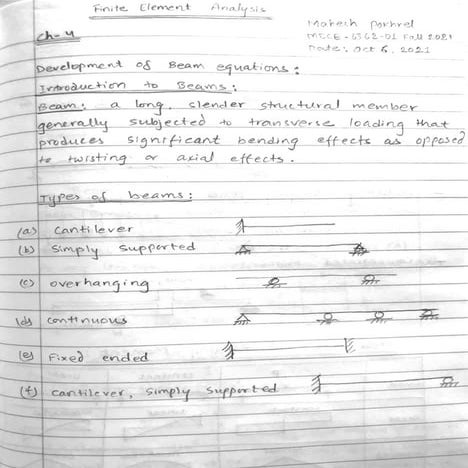 Finite Element Analysis
Mahesh Pokhrel
MECE-6362-01 Fall 2021
Date: Oct 6, 2021
Ch-4
Development of Beam equations:
Introduction to Beams:
Beam: a long, slender structural member
generally subjected to transverse loading that
produces significant bending effects as opposed
to twisting or axial effects.
Types of beams:
(a) cantilever
(b) Simply supported
(c) overhanging
(d) continuous
(e) Fixed ended
(f) cantilever, simply supported